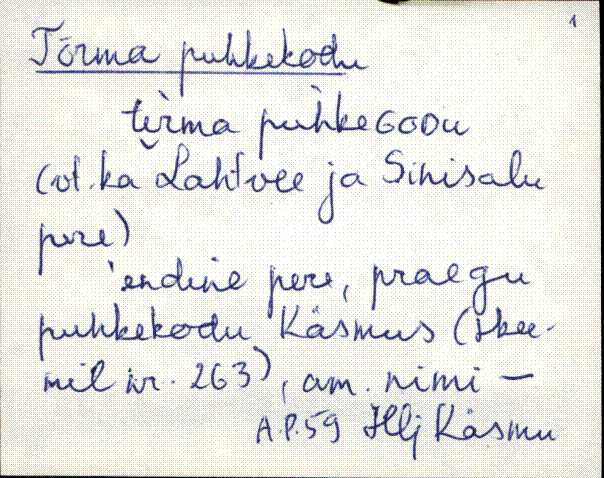 1
Tõrma puhkekodu
tèrma puhkeGODu
(vt. ka Lahtvee ja Sinisalu
pere)
'endine pere, praegu
puhkekodu Käsmus (skee-
mil nr. 263), am. nimi –
A.P. 59 Hlj Käsmu